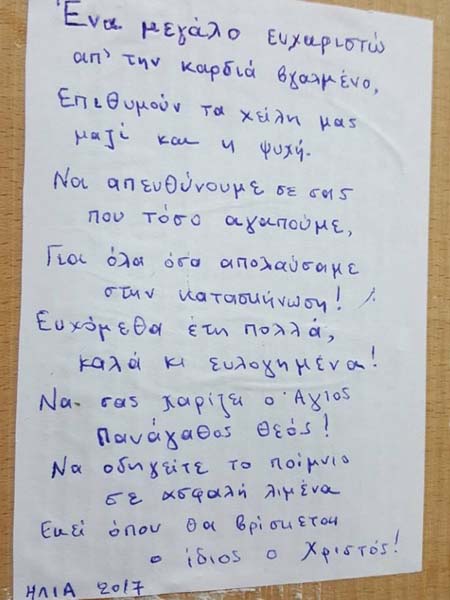 Ένα μεγάλο ευχαριστώ
απ' την καρδιά βγαλμένο,
Επιθυμούν τα χείλη μας
μαζί και η ψυχή.
Να απευθύνουμε σε σας
που τόσο αγαπούμε,
Για όλα όσα απολαύσαμε
στην κατασκήνωση!
Ευχόμεθα έτη πολλά,
καλά κι ευλογημένα!
Να σας χαρίζει ο Άγιος
Πανάγαθος Θεός!
Να οδηγείτε το ποίμνιο
σε ασφαλή λιμένα
Εκεί όπου θα βρίσκεται
ο ίδιος ο Χριστός!
ΗΛΙΑ 2017